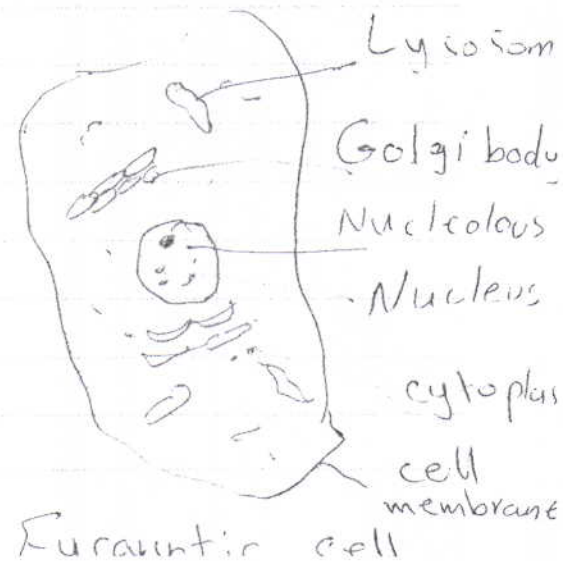 Lysosom
Golgi body
Nucleolous
Nucleus
cytoplas
cell
membrane
cell